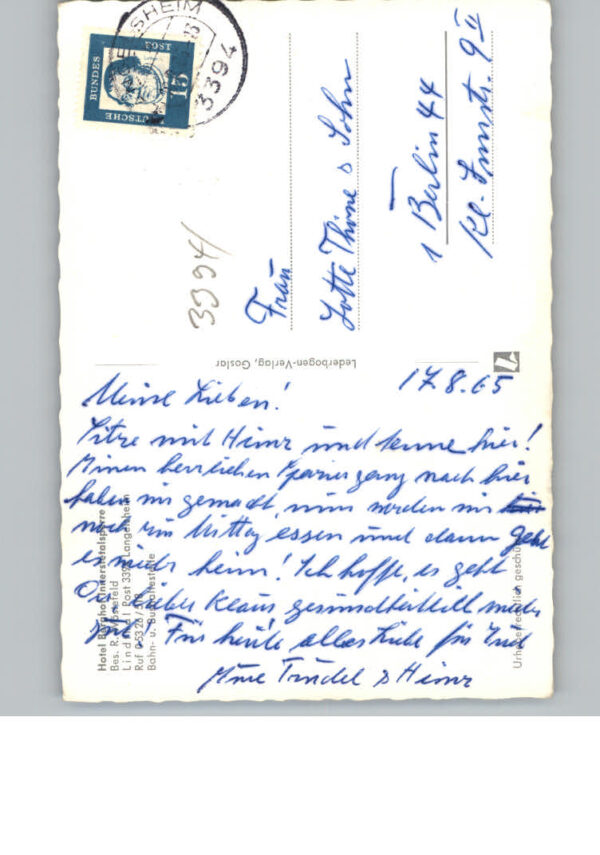 LANGELSHEIM
3394
DEUTSCHE
BUNDES
1961
15
3394/
Frau
Lotte Thöne & Sohn
1 Berlin 44
Kl. Innstr. 9 II
Lederbogen-Verlag, Goslar
17.8.65
Meine Lieben!
Sitze mit Heinz und Hanne hier!
Einen herrlichen Spaziergang nach hier
haben wir gemacht, nun werden wir
noch ein Mittag essen und dann geht
es wieder heim! Ich hoffe, es geht
Dir lieber Klaus gesundheitlich wieder
gut! Für heute alles Liebe für Euch
Eure Trudel & Heinz
Hotel Berghof Innerstetalsperre
Bes. R.
Lindthal Post 3394 Langelsheim
Ruf 0 53 26 /
Bahn- u. Bushaltestelle
Urheberrechtlich geschützt